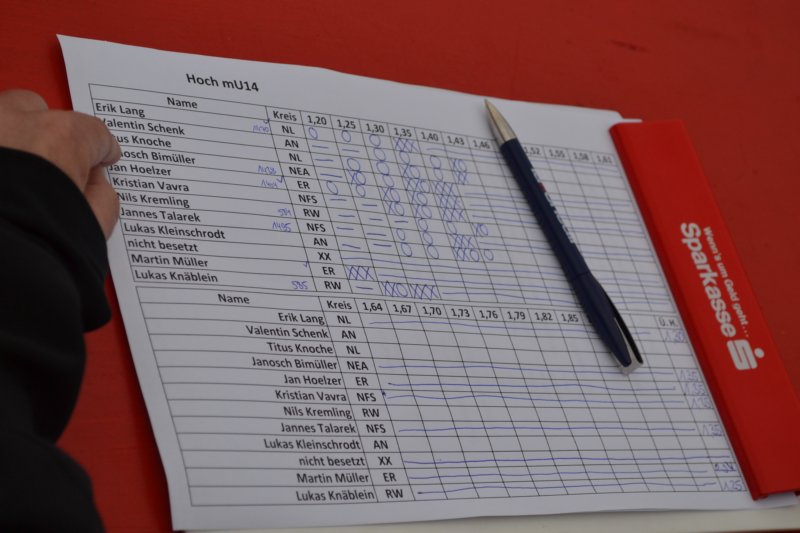 Hoch mU14
Name Kreis 1,20 1,25 1,30 1,35 1,40 1,43 1,46 1,52 1,55 1,58 1,61
Erik Lang NL
Valentin Schenk AN
Titus Knoche NL
Janosch Bimüller NEA
Jan Hoelzer ER
Kristian Vavra NFS
Nils Kremling RW
Jannes Talarek
Lukas Kleinschrodt AN
nicht besetzt XX
Martin Müller ER
Lukas Knäblein 595 RW
Name Kreis 1,64 1,67 1,70 1,73 1,76 1,79 1,82 1,85
Erik Lang NL
Valentin Schenk AN
Titus Knoche NL
Janosch Bimüller NEA
Jan Hoelzer ER
Kristian Vavra NFS
Nils Kremling RW
Jannes Talarek NFS 1,25
Lukas Kleinschrodt AN
nicht besetzt XX
Martin Müller ER
Lukas Knäblein RW 1,25
Wenn's um Geld geht...
Sparkasse